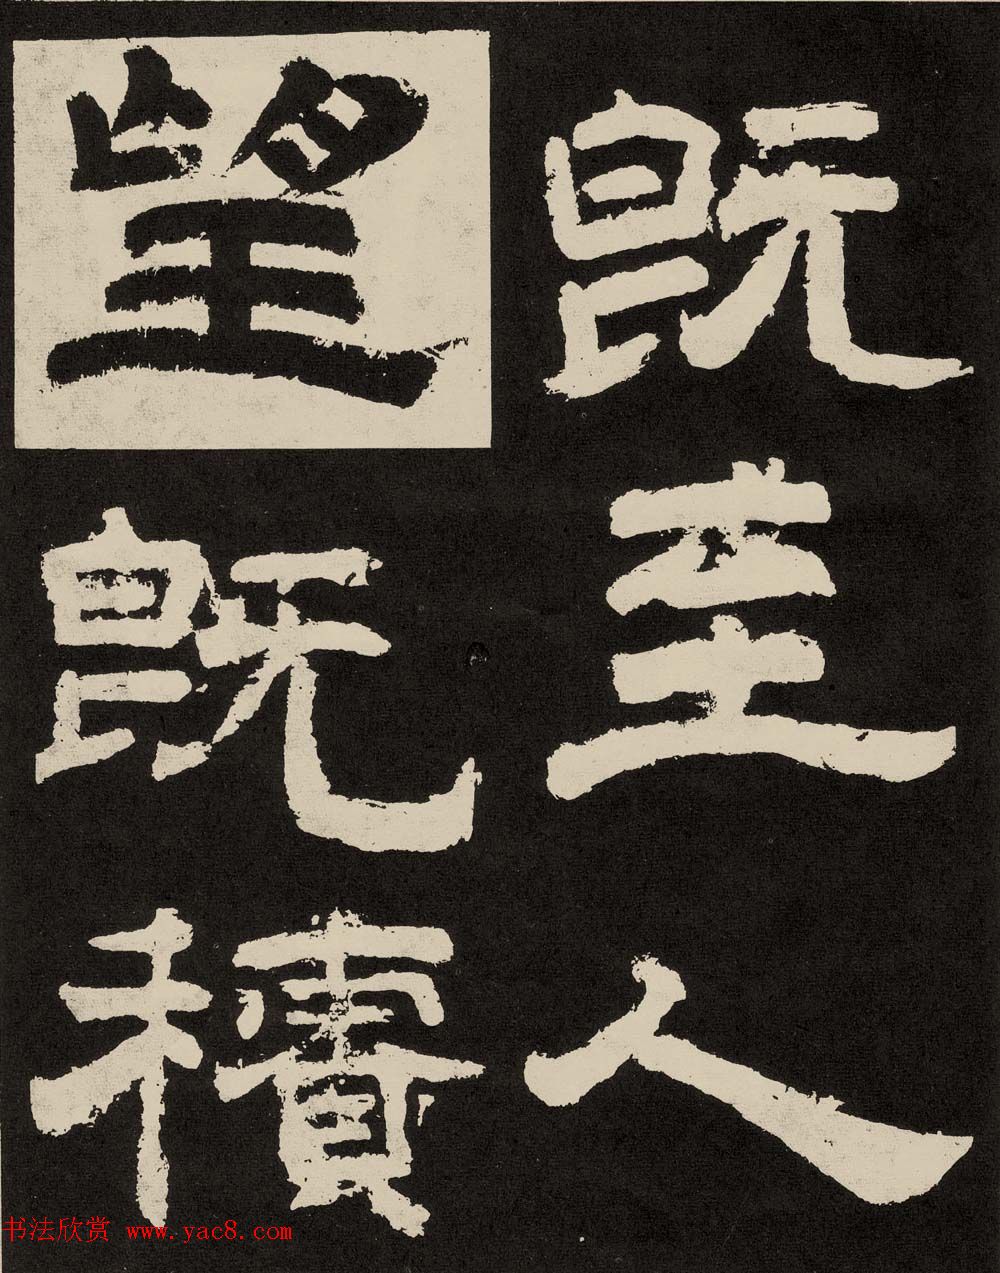 既至人
望既積
书法欣赏 www.yac8.com